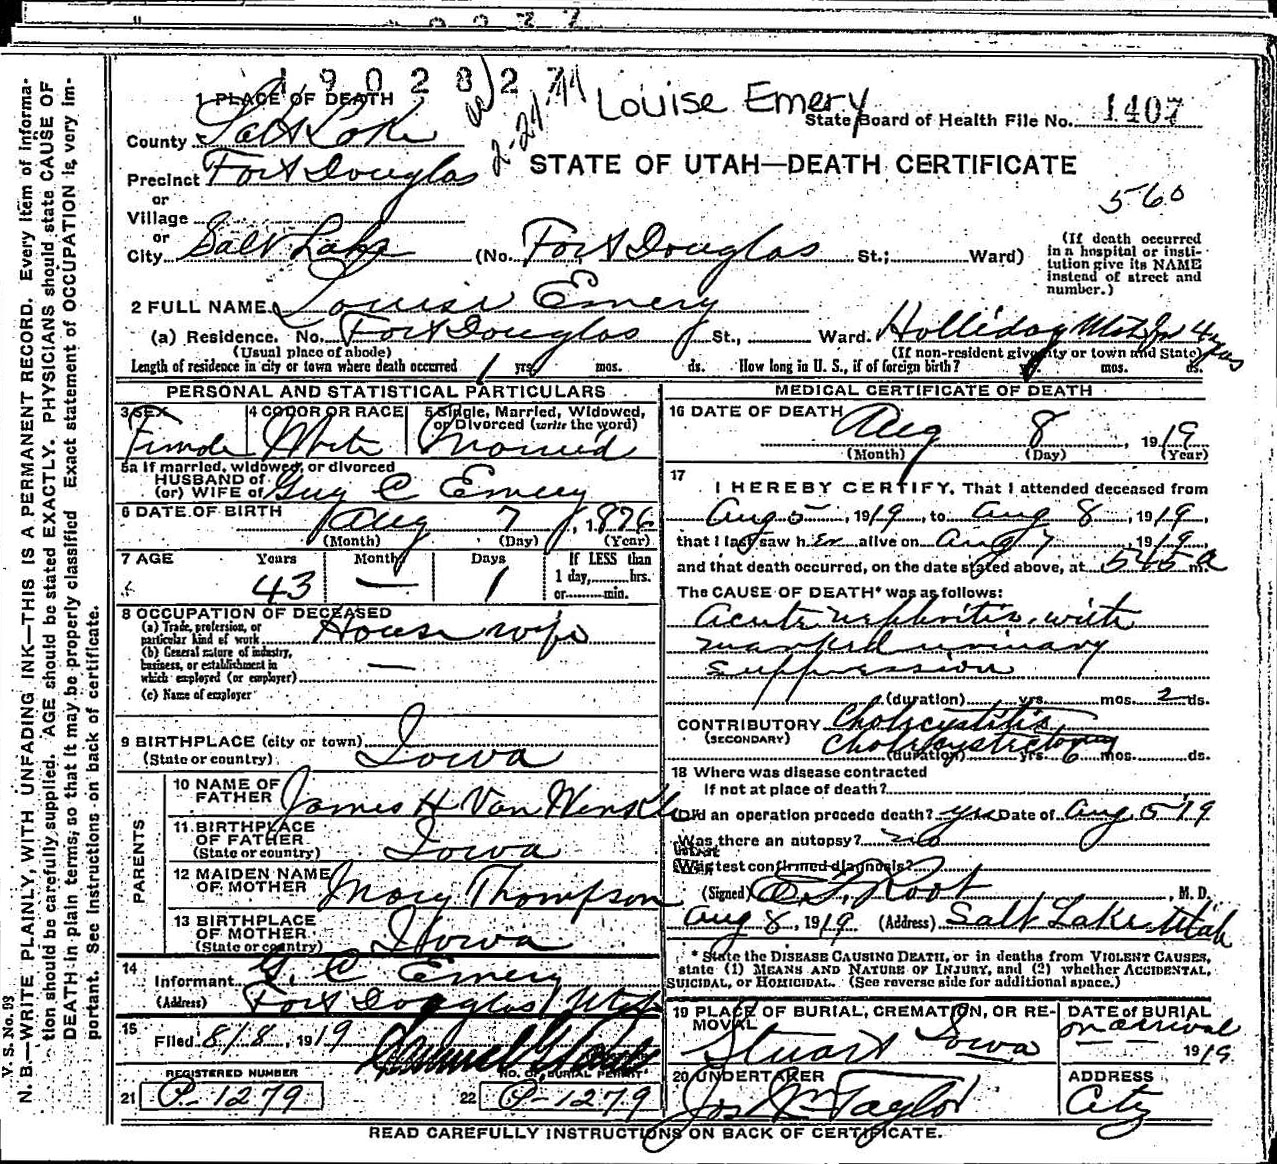 1902827
Louise Emery
1 PLACE OF DEATH
State Board of Health File No. 1407
County Salt Lake
2-24-44
STATE OF UTAH—DEATH CERTIFICATE
Precinct Fort Douglas
560
or
Village
or
City Salt Lake (No. Fort Douglas St.; Ward)
(If death occurred in a hospital or institution give its NAME instead of street and number.)
2 FULL NAME Louise Emery
(a) Residence. No. Fort Douglas St., Ward. Holliday Utah for 4 yrs
(Usual place of abode) (If non-resident give city or town and State)
Length of residence in city or town where death occurred 1 yrs. mos. ds. How long in U. S., if of foreign birth? yrs. mos. ds.
PERSONAL AND STATISTICAL PARTICULARS
3 SEX Female
4 COLOR OR RACE White
5 Single, Married, Widowed, or Divorced (write the word) Married
5a If married, widowed, or divorced
HUSBAND of
(or) WIFE of Guy C Emery
6 DATE OF BIRTH Aug 7, 1876
(Month) (Day) (Year)
7 AGE Years Months Days If LESS than
43 — 1 1 day, hrs.
or min.
8 OCCUPATION OF DECEASED
(a) Trade, profession, or particular kind of work House wife
(b) General nature of industry, business, or establishment in which employed (or employer) —
(c) Name of employer
9 BIRTHPLACE (city or town)
(State or country) Iowa
PARENTS
10 NAME OF FATHER James H Van Winkle
11 BIRTHPLACE OF FATHER
(State or country) Iowa
12 MAIDEN NAME OF MOTHER Mary Thompson
13 BIRTHPLACE OF MOTHER
(State or country) Iowa
14 Informant G. C Emery
(Address) Fort Douglas, Utah
15 Filed 8/8, 1919
REGISTERED NUMBER
21 P-1279
NO. OF BURIAL PERMIT
22 P-1279
MEDICAL CERTIFICATE OF DEATH
16 DATE OF DEATH Aug 8, 1919
(Month) (Day) (Year)
17 I HEREBY CERTIFY, That I attended deceased from
Aug 5, 1919, to Aug 8, 1919,
that I last saw her alive on Aug 7, 1919,
and that death occurred, on the date stated above, at 545 a m.
The CAUSE OF DEATH* was as follows:
Acute nephritis, with
marked urinary
suppression
(duration) yrs. mos. 2 ds.
CONTRIBUTORY Cholecystitis
(SECONDARY) Cholecystectomy
(duration) yrs. 6 mos. ds.
18 Where was disease contracted
If not at place of death?
Did an operation precede death? yes Date of Aug 5 '19
Was there an autopsy? no
What test confirmed diagnosis?
(Signed) Root, M. D.
Aug 8, 1919 (Address) Salt Lake Utah
* State the DISEASE CAUSING DEATH, or in deaths from VIOLENT CAUSES,
state (1) MEANS AND NATURE OF INJURY, and (2) whether ACCIDENTAL,
SUICIDAL, or HOMICIDAL. (See reverse side for additional space.)
19 PLACE OF BURIAL, CREMATION, OR REMOVAL
Stuart Iowa
DATE of BURIAL
on arrival
1919
20 UNDERTAKER
Jos Wm Taylor
ADDRESS
City
READ CAREFULLY INSTRUCTIONS ON BACK OF CERTIFICATE.
V. S. No. 93
N. B.—WRITE PLAINLY, WITH UNFADING INK—THIS IS A PERMANENT RECORD. Every item of informa-
tion should be carefully supplied. AGE should be stated EXACTLY. PHYSICIANS should state CAUSE OF
DEATH in plain terms, so that it may be properly classified. Exact statement of OCCUPATION is very im-
portant. See instructions on back of certificate.